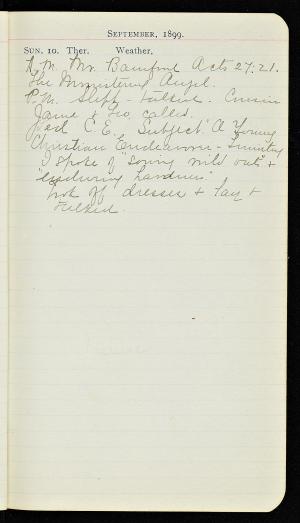 September, 1899.
Sun. 10. Ther. Weather,
A.M. Mr. Bamford Acts 27:21.
The Ministering Angel.
P.M. Slept - talked. Cousin
Jamie & Geo. called.
Lead C.E. Subject "A Young
Christian Endeavorer - Timothy
I spoke of "sowing wild oats" &
"enduring hardness"
Took off dresses & lay &
talked.